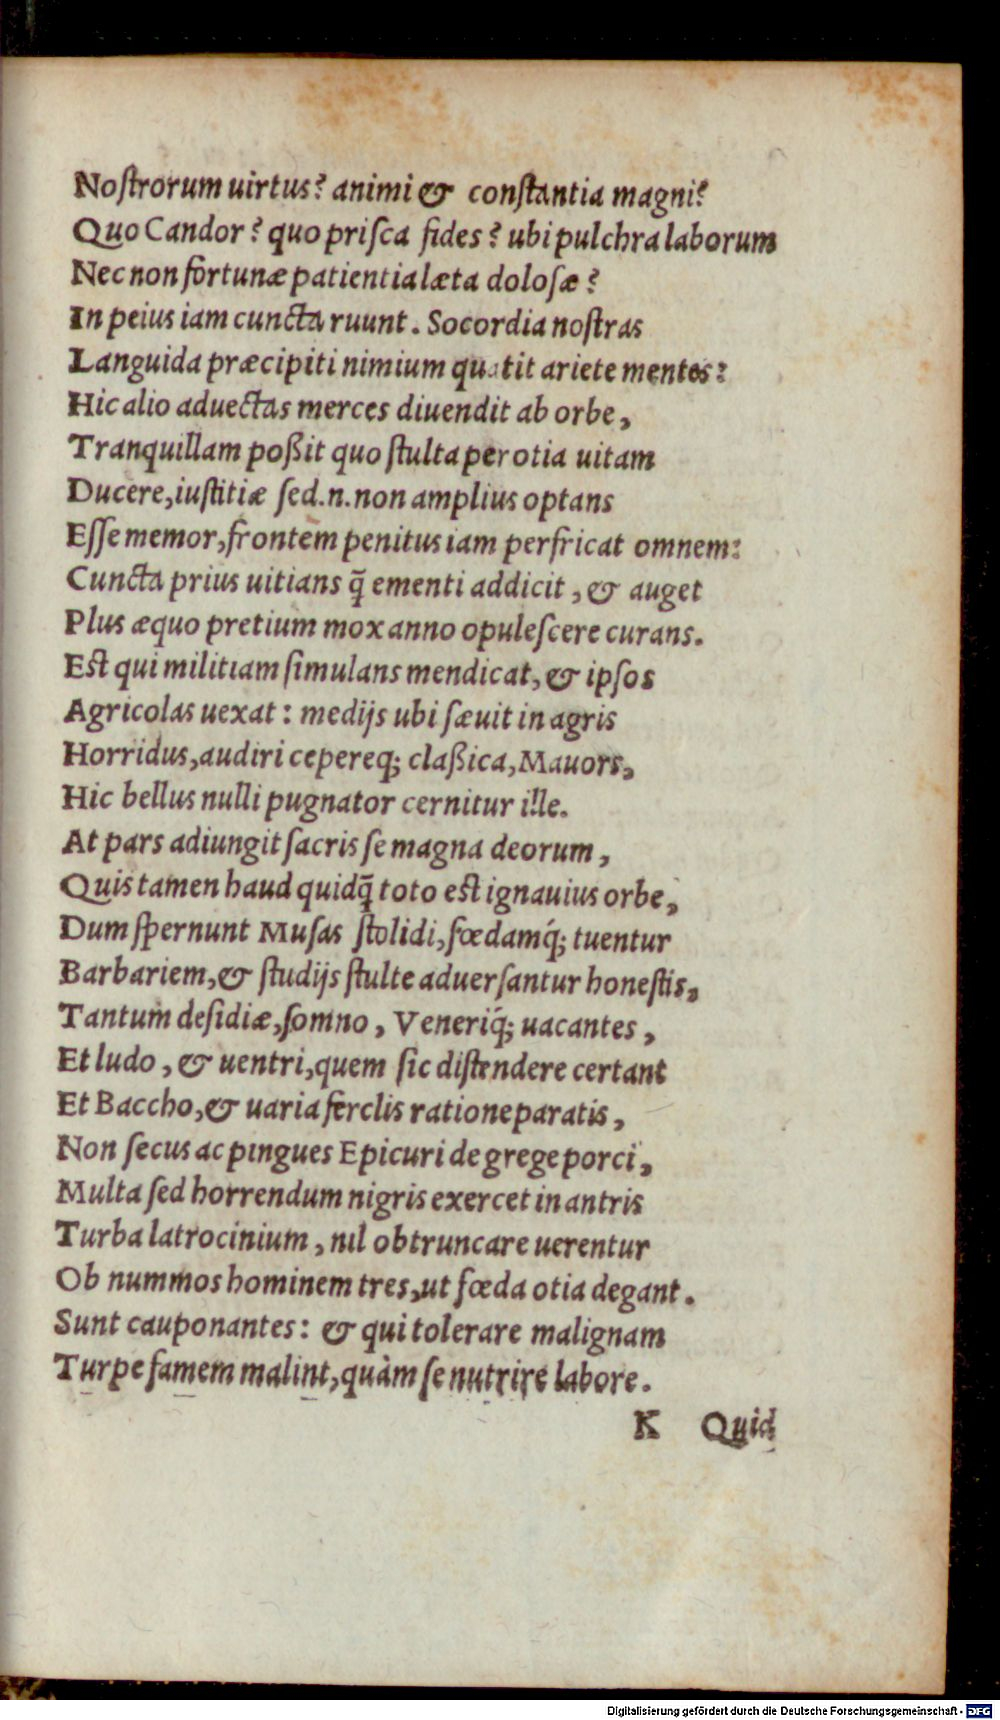 Noſtrorum uirtus? animi & conſtantia magni?
Quo Candor? quo priſca fides? ubi pulchra laborum
Nec non fortunæ patientia læta doloſæ?
In peius iam cuncta ruunt. Socordia noſtras
Languida præcipiti nimium quatit ariete mentes:
Hic alio aduectas merces diuendit ab orbe,
Tranquillam poßit quo ſtulta per otia uitam
Ducere, iuſtitiæ ſed.n.non amplius optans
Eſſe memor, frontem penitus iam perfricat omnem:
Cuncta prius uitians q̃ ementi addicit, & auget
Plus æquo pretium mox anno opuleſcere curans.
Eſt qui militiam ſimulans mendicat, & ipſos
Agricolas uexat: medijs ubi ſæuit in agris
Horridus, audiri cepereq; claßica, Mauors,
Hic bellus nulli pugnator cernitur ille.
At pars adiungit ſacris ſe magna deorum,
Quis tamen haud quidq̃ toto eſt ignauius orbe,
Dum ſpernunt Muſas ſtolidi, fœdamq́; tuentur
Barbariem, & ſtudijs ſtulte aduerſantur honeſtis,
Tantum deſidiæ, ſomno, Veneriq́; uacantes,
Et ludo, & uentri, quem ſic diſtendere certant
Et Baccho, & uaria ferclis ratione paratis,
Non ſecus ac pingues Epicuri de grege porci,
Multa ſed horrendum nigris exercet in antris
Turba latrocinium, nil obtruncare uerentur
Ob nummos hominem tres, ut fœda otia degant.
Sunt cauponantes: & qui tolerare malignam
Turpe famem malint, quàm ſe nutrire labore.
K Quid
Digitalisierung gefördert durch die Deutsche Forschungsgemeinschaft - DFG